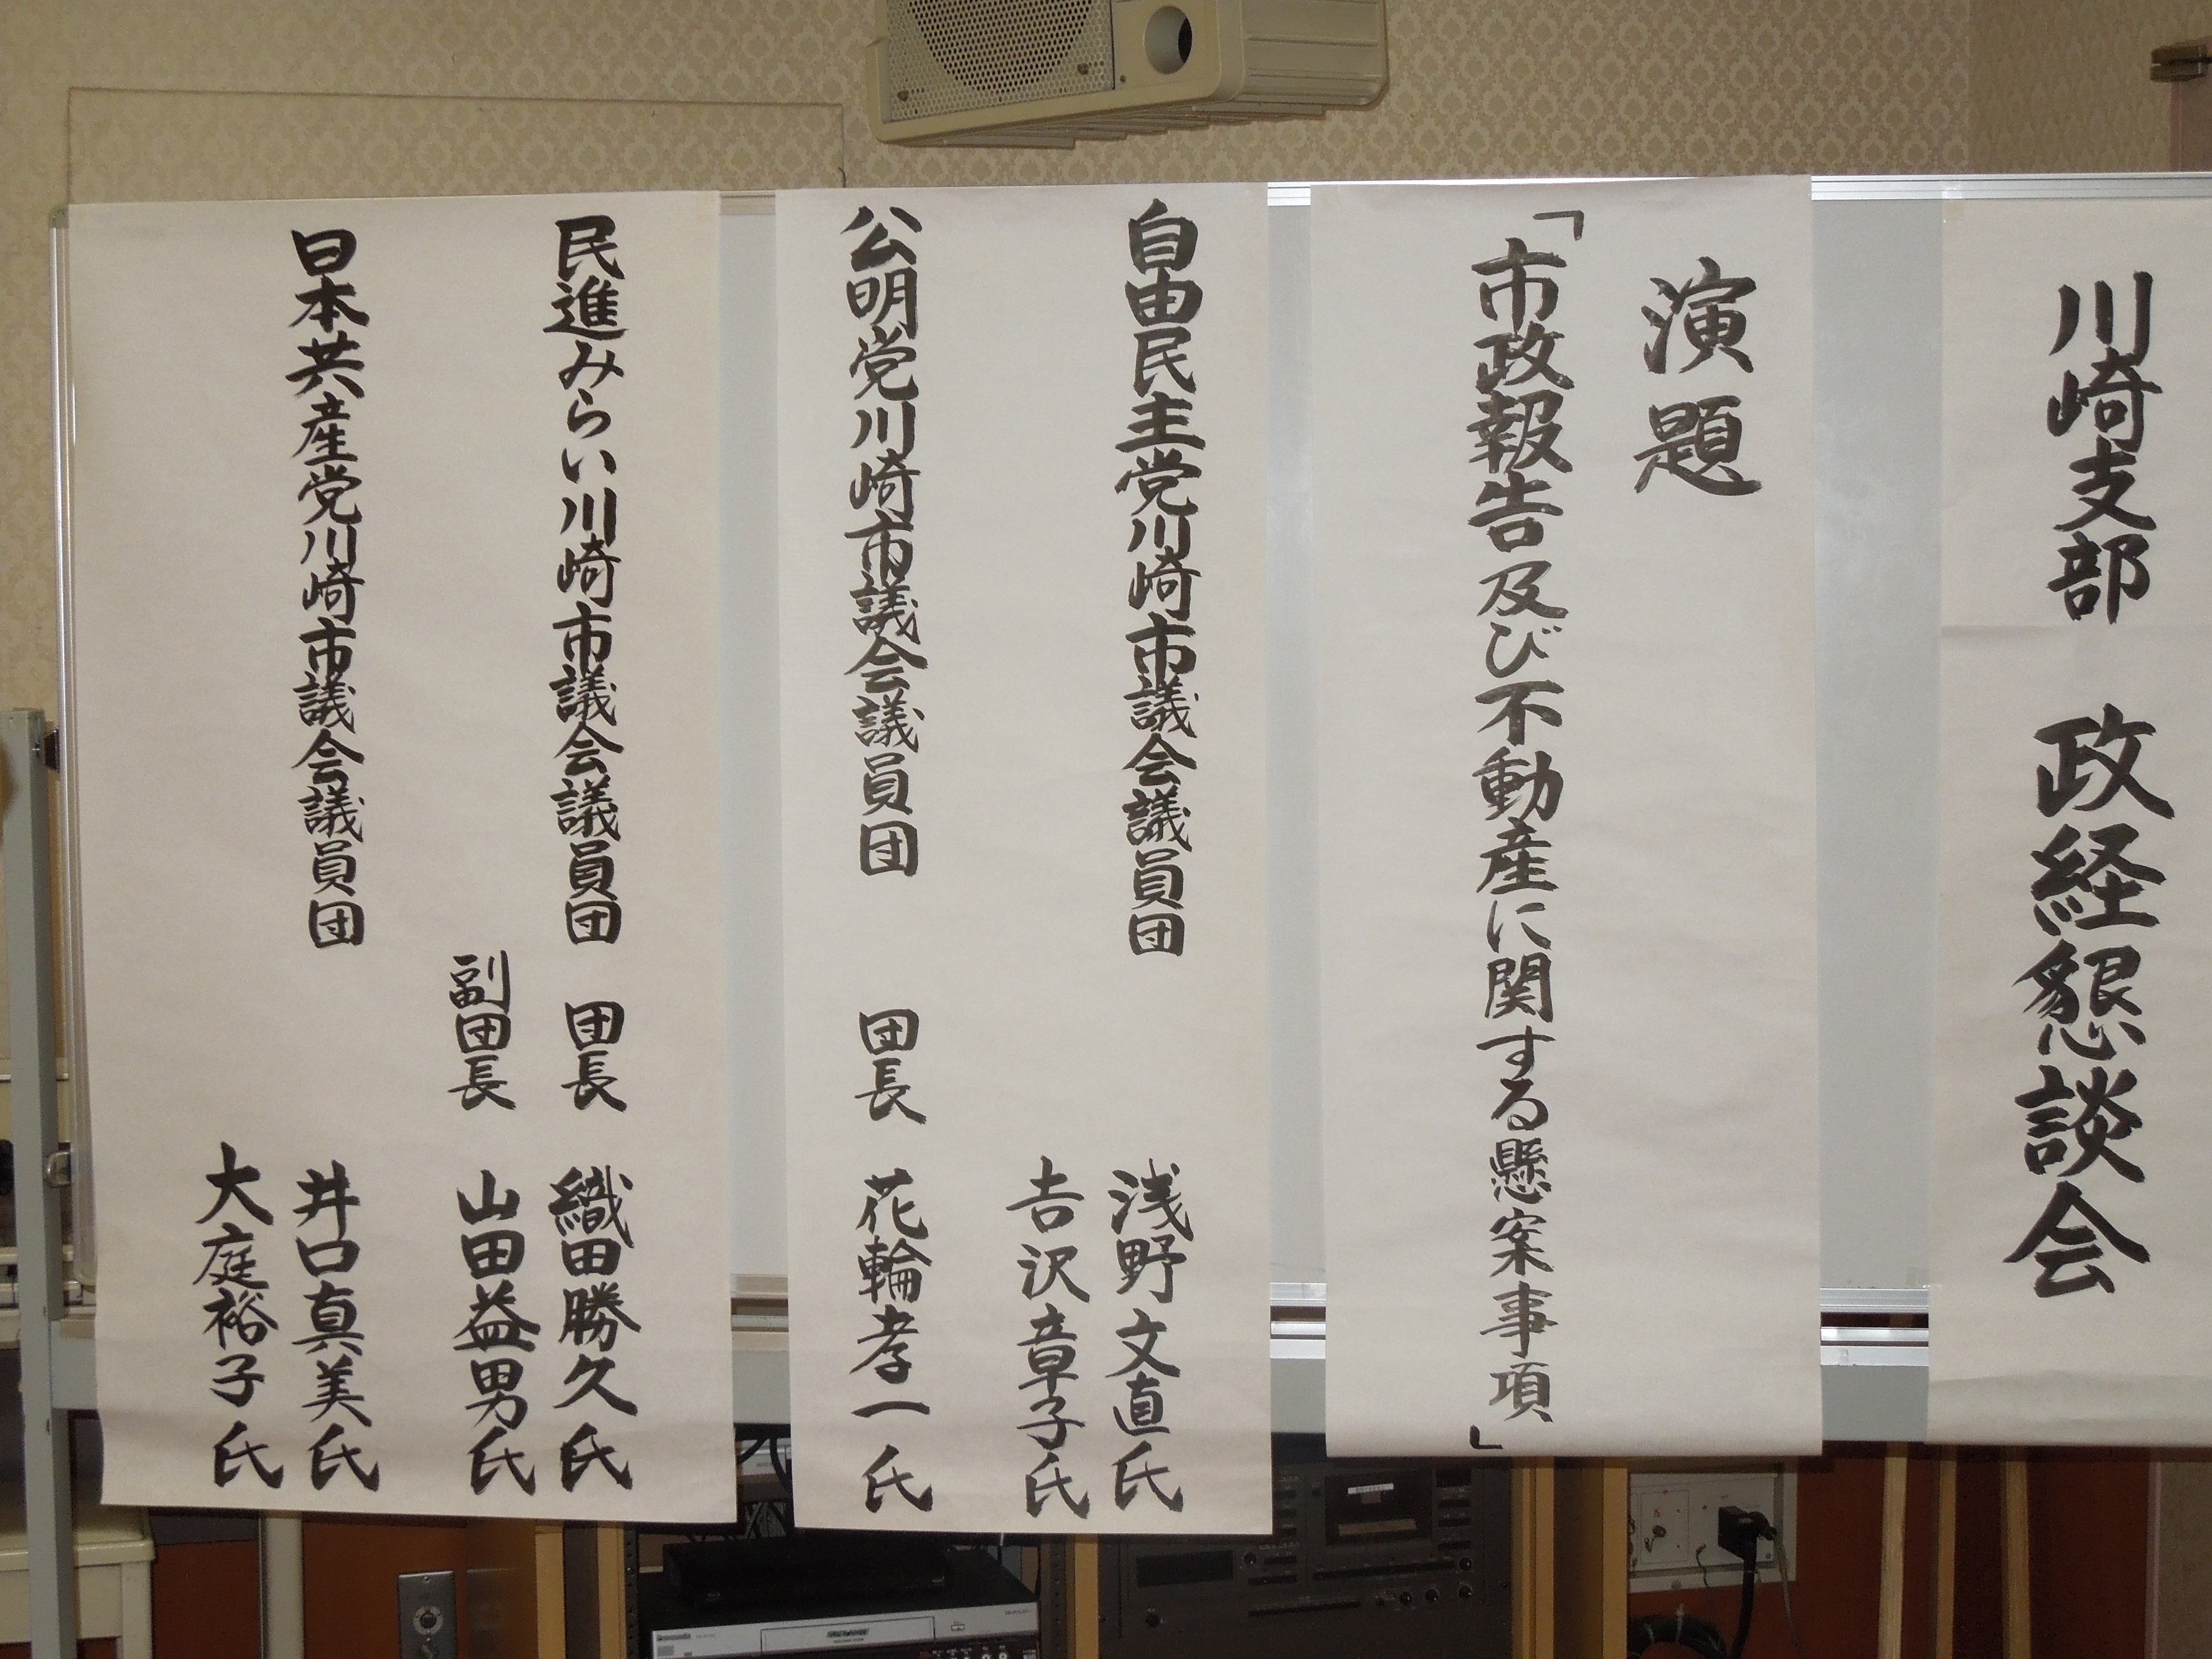 川崎支部　政経懇談会
演題
「市政報告及び不動産に関する懸案事項」
自由民主党川崎市議会議員団　浅野文直氏
吉沢章子氏
公明党川崎市議会議員団　団長　花輪孝一氏
民進みらい川崎市議会議員団　団長　織田勝久氏
副団長　山田益男氏
日本共産党川崎市議会議員団　井口真美氏
大庭裕子氏